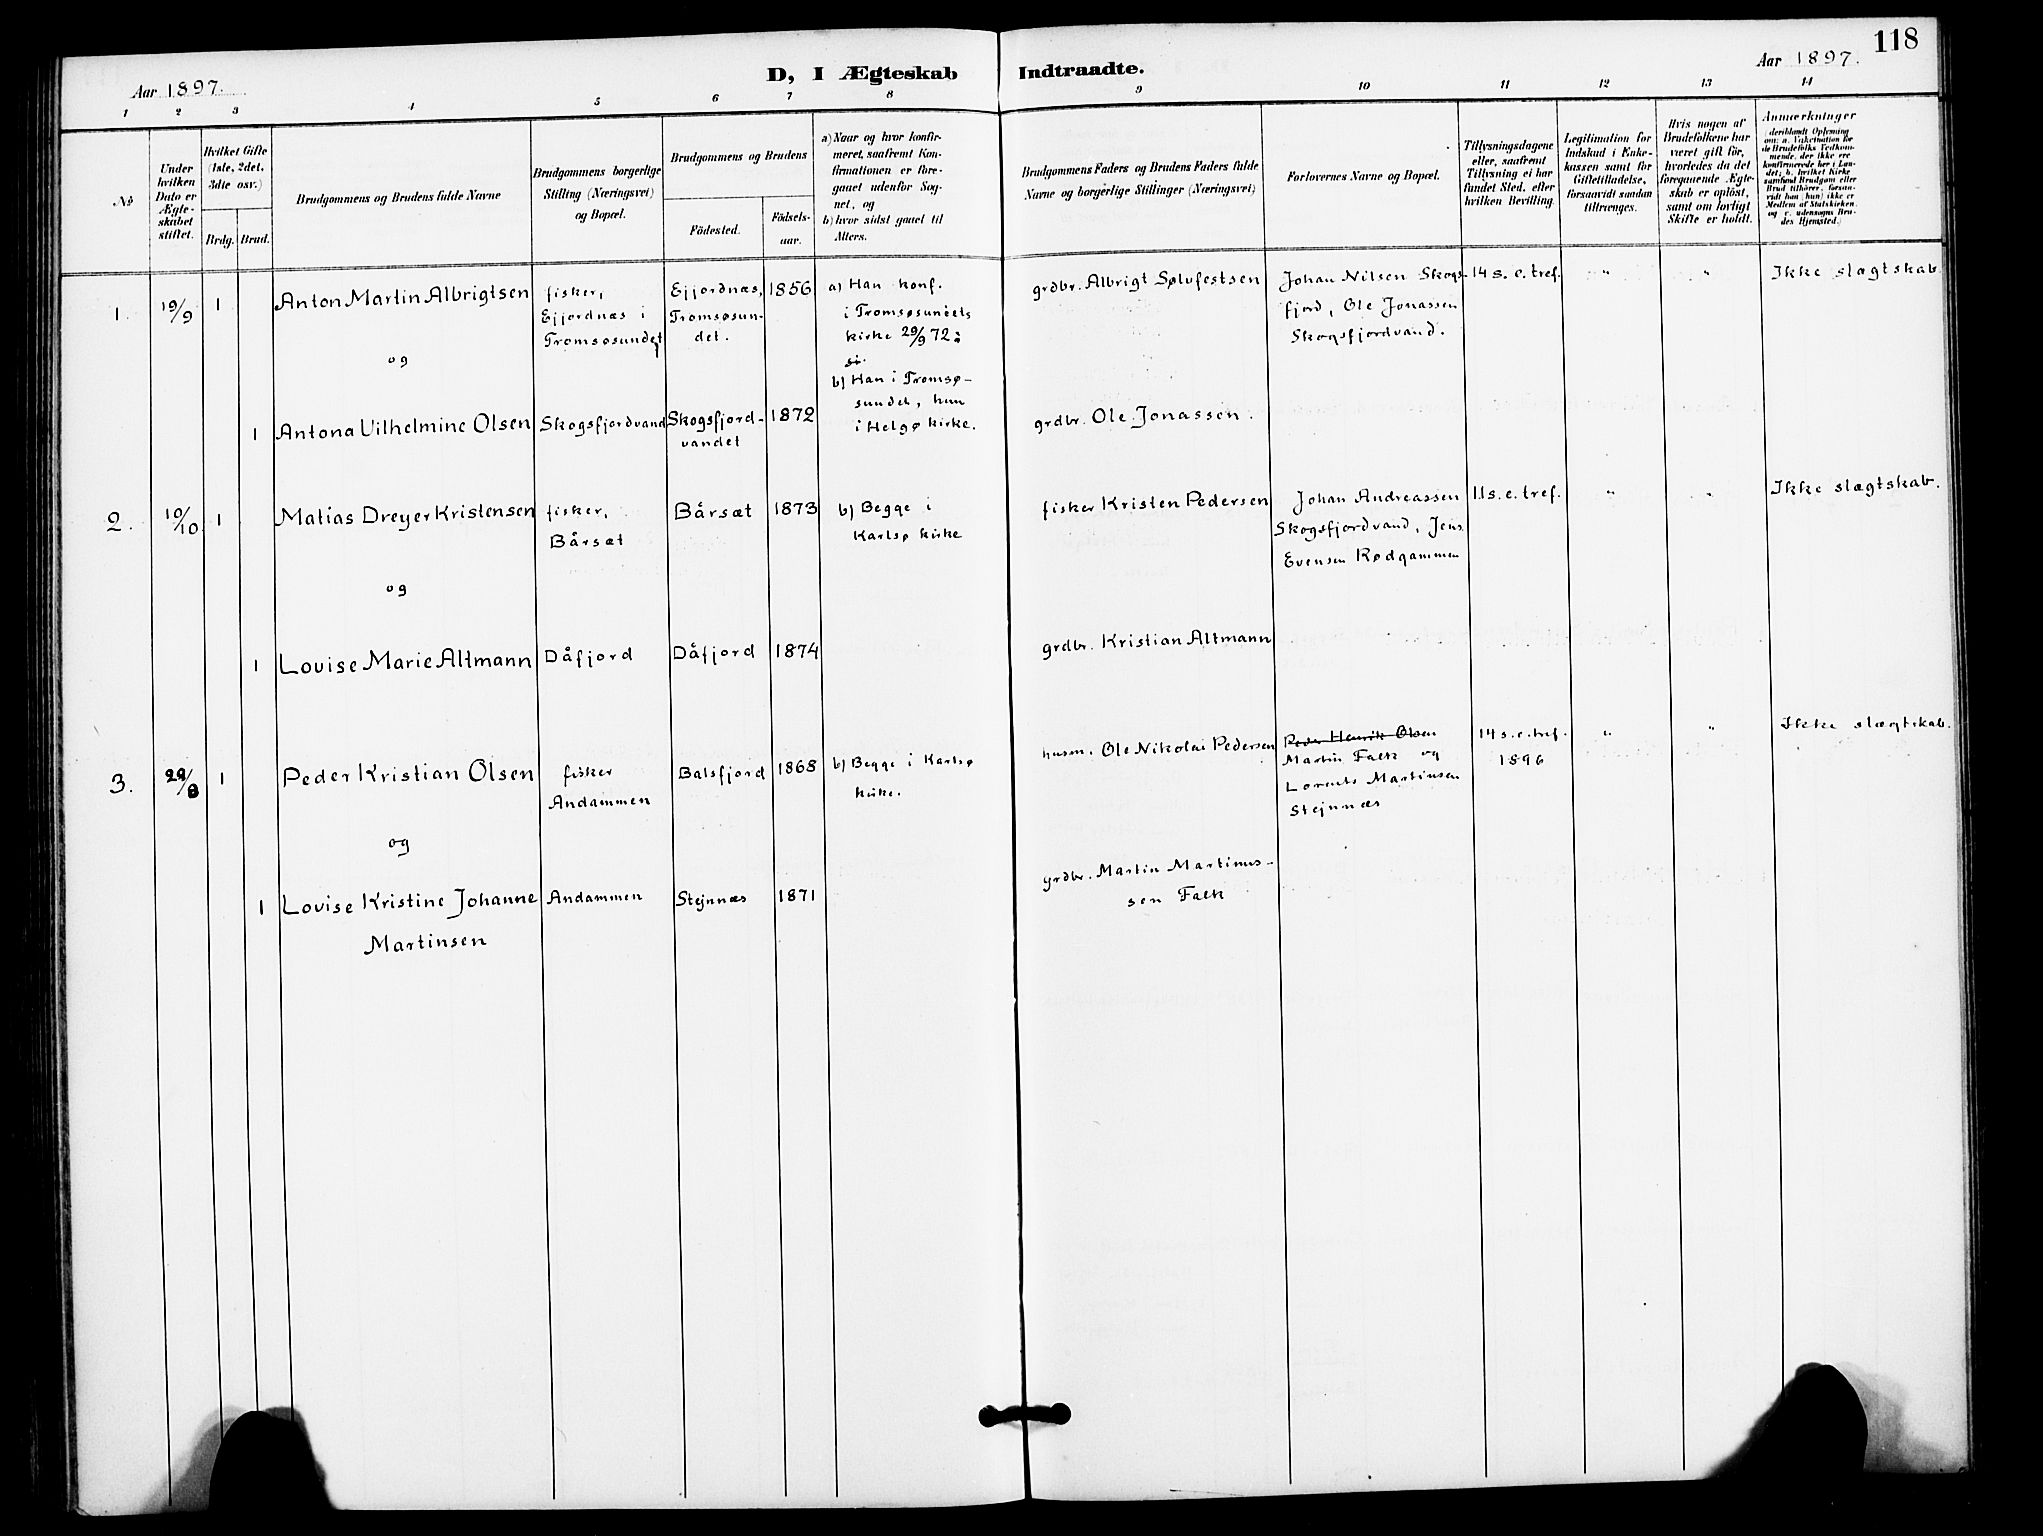 118
D, I Ægteskab Indtraadte.
Aar 1897.
Aar 1897.
1 2 3 4 5 6 7 8 9 10 11 12 13 14
No
Under
hvilken
Dato er
Ægte-
skabet
stiftet.
Hvilket Gifte
(1ste, 2det,
3die osv.)
Brdg. Brud.
Brudgommens og Brudens fulde Navne
Brudgommens borgerlige
Stilling (Næringsvei)
og Bopæl.
Brudgommens og Brudens
Födested.
Födsels-
aar.
a) Naar og hvor konfir-
meret, saafremt Kon-
firmationen er fore-
gaaet udenfor Sog-
net, og
b) hvor sidst gaaet til
Alters.
Brudgommens Faders og Brudens Faders fulde
Navne og borgerlige Stillinger (Næringsvei)
Forlovernes Navne og Bopæl.
Tillysningsdagene
eller, saafremt
Tillysning ei har
fundet Sted, efter
hvilken Bevilling.
Legitimation for
Indskud i Enke-
kassen samt for
Giftetilladelse,
forsaavidt saadan
tiltrænges.
Hvis nogen af
Brudefolkene har
været gift för,
hvorledes da det
foregaaende Ægte-
skab er oplöst,
samt om lovligt
Skifte er holdt.
Anmærkninger
(deriblandt Oplysning
om: a. Vakcination for
de Brudefolks Vedkom-
mende, der ikke ere
konfirmerede her i Lan-
det; b. hvilket Kirke
samfund Brudgom eller
Brud tilhörer, forsaa-
vidt han (hun) ikke er
Medlem af Statskirken,
og c. udensogns Bru-
des Hjemsted.)
1. 19/9 1 Anton Martin Albrigtsen
fisker,
Ejjordnæs i
Tromsøsundet
Ejjordnæs,
Tromsøsun-
det.
1856
a) Han konf.
i Tromsøsundets
kirke 29/9 72
b) Han i Tromsø-
sundet, hun
i Helgø kirke.
grdbr. Albrigt Sølvfestsen
Johan Nilsen Skogs-
fjord, Ole Jonassen
Skogsfjordvand.
14 s. e. tref. " "
Ikke slægtskab
og
1 Antona Vilhelmine Olsen
Skogsfjordvand
Skogsfjord-
vandet
1872
grdbr. Ole Jonassen.
2. 10/10 1 Matias Dreyer Kristensen
fisker,
Bårsæt
Bårsæt 1873
b) Begge i
Karlsø kirke
fisker Kristen Pedersen
Johan Andreassen
Skogsfjordvand, Jens
Evensen Rødgammen
11 s. e. tref. " "
Ikke slægtskab.
og
1 Lovise Marie Altmann Dåfjord Dåfjord 1874
grdbr. Kristian Altmann
3. 1 Peder Kristian Olsen
fisker
Andammen
Balsfjord 1868
b) Begge i Karlsø
kirke.
husm. Ole Nikolai Pedersen
Peder Henrik Olsen
Martin Falk og
Lorents Martinsen
Stejnnæs
14 s. e. tref.
1896
" "
Ikke slægtskab.
og
1 Lovise Kristine Johanne
Martinsen
Andammen Stejnnæs 1871
grdbr. Martin Martinus-
sen Falk